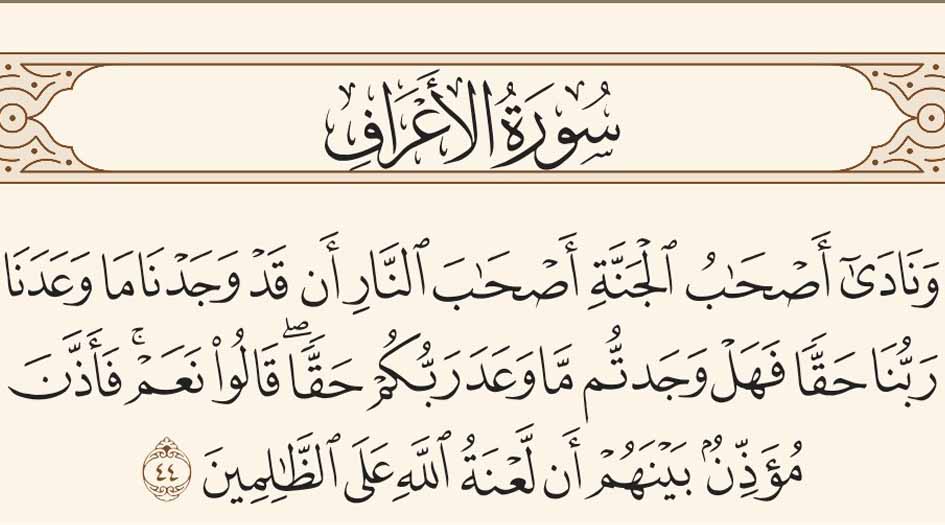 سُورَةُ الأَعْرَافِ
وَنَادَىٰٓ أَصْحَٰبُ ٱلْجَنَّةِ أَصْحَٰبَ ٱلنَّارِ أَن قَدْ وَجَدْنَا مَا وَعَدَنَا
رَبُّنَا حَقًّا فَهَلْ وَجَدتُّم مَّا وَعَدَ رَبُّكُمْ حَقًّا ۖ قَالُوا۟ نَعَمْ ۚ فَأَذَّنَ
مُؤَذِّنٌۢ بَيْنَهُمْ أَن لَّعْنَةُ ٱللَّهِ عَلَى ٱلظَّٰلِمِينَ ٤٤